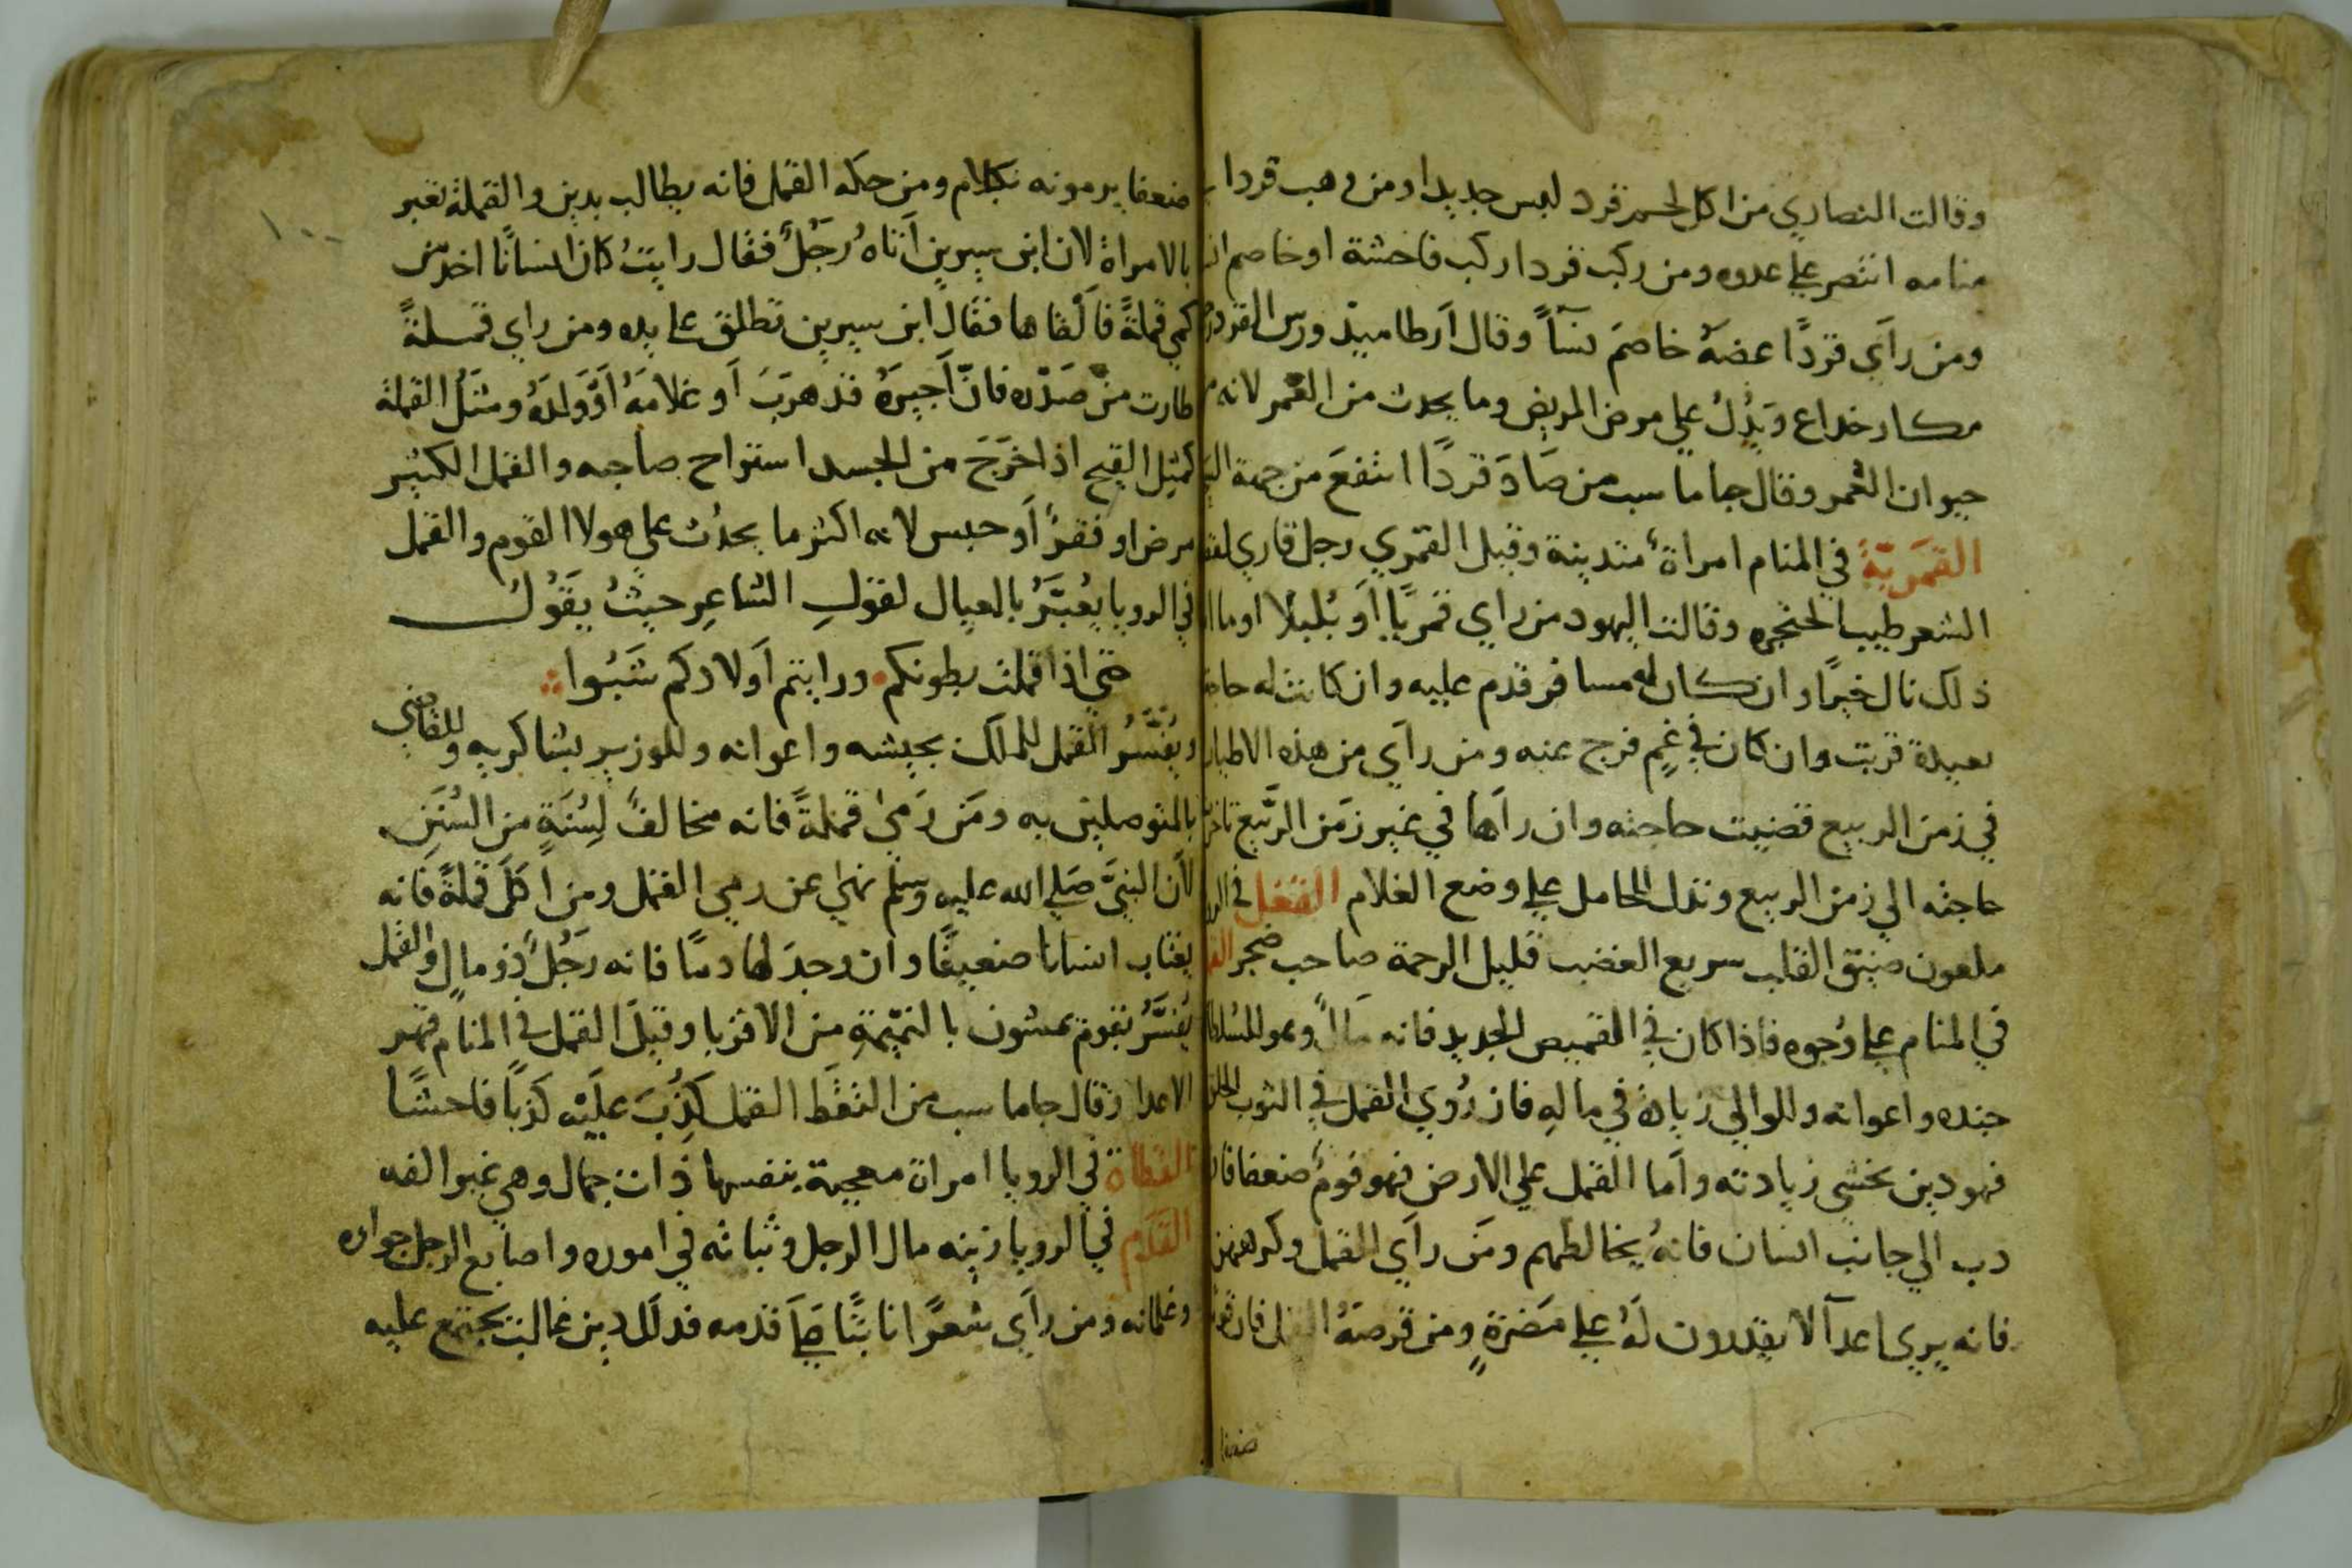 وقالت النصاري من اكل لحم قرد لبس جديدا ومن وهب قردا
منامه انتصر علي عدوه ومن ركب قردا ركب فاحشة او خاصم
ومن رآي قردًا عضهُ خاصمَ نسآً وقال ارطاميد ورس القرد
مكار خداع ويَدُلُ علي مرض المريض وما يحدث من القمر لانه
حيوان القمر وقال جاماسب من صَادَ قردًا انتفعَ من جهة
القمَريّةُ في المنام امراةٌ متدينة وقيل القمري رجل قاري
الشعر طيب الحنجره وقالت اليهود من راي قمريًا أو بُلبلا او ما
ذلك نال خيرًا وان كان له مسافر قدم عليه وان كانت له
بعيدة قربت وان كان في غمٍ فرج عنه ومن رآي من هذه الاطيار
في زمن الربيع قضيت حاجته وان رآها في غير زمَن الرَّبيع
حاجته الي زمن الربيع وتدل الحامل علي وضع الغلام القمل في
ملعون ضيق القلب سريع الغضب قليل الرحمة صاحب ضجر
في المنام علي وُجوه فاذا كان في القميص الجديد فانه مالٌ وهو للسُلطان
جنده واعوانه وللوالي زيادة في مالِه فان رُويَ القمل في الثوب الخلق
فهو دين يخشي زيادته وأما القمل علي الارض فهو قومٌ ضعفا فان
دب الي جانب انسان فانهُ يخالطهم ومَن رآي القمل وكرههن
فانه يري اعدآ لا يقدرون لهُ علي مَضرةٍ ومن قرصهُ القمل فان
ضعفا
ضعفا يرمونه بكلام ومن حكه القمل فانه يطالب بدين والقملة تعبر
بالامراة لان ابن سيرين اَتاهُ رَجُلٌ فقال رايتُ كان انسانًا اخد من
كمي قملةً فاَلقاها فقال ابن سيرين تطلق علي يده ومن راي قمـلةً
طارت منْ صَدْره فانّ اَجيرَهُ قد هرَبَ اَو غلامَهُ اَوْ وَلدَهُ ومثلُ القملة
كمثِل القيح اذا خرَجَ من الجسد استراح صاحبه والقمل الكثير
مرض او فقرٌ اَو حبس لانه اكثر ما يحدُث علي هولا القوم والقمل
في الرويا يُعبَّرُ بالعيال لقولِ الشاعِر حيثُ يَقُولُ
حتي اذا قملت بطونكم . ورايتم اَولادكم شَبُوا
ويُفسَّرُ القمل للملك بجيشه واعوانه وللوزير بشاكريه وللقاضي
بالمتوصلين به ومَن رَميٰ قملةً فانه مخالفٌ لِسُنَةٍ من السُنَن
لأن النبيَّ صَلي الله عليه وسلم نهيٰ عن رمي القمل ومن اَكلَ قملةً فانه
يغتاب انسانا ضعيفًا وان وجدَ لها دمًا فانه رَجُلٌ ذو مالٍ والقمل
يُفسَّرُ بقوم يمشون بالنميّمةِ من الاقربا وقيلَ القمل في المنام قهر
الاعدا وقال جاماسب من التقَط القمل كُذِبَ عليْه كَذبًا فاحشًا
القطاة في الرويا امراة معجبة بنفسها ذات جمال وهي غير الفه
القَدَم في الرويا زينه مال الرجل وثباته في اموره واصابع الرجل جواره
وغلمانه ومن رآي شعرًا نابتًا علي قدمه فدلل دين غالب يجتمع عليه